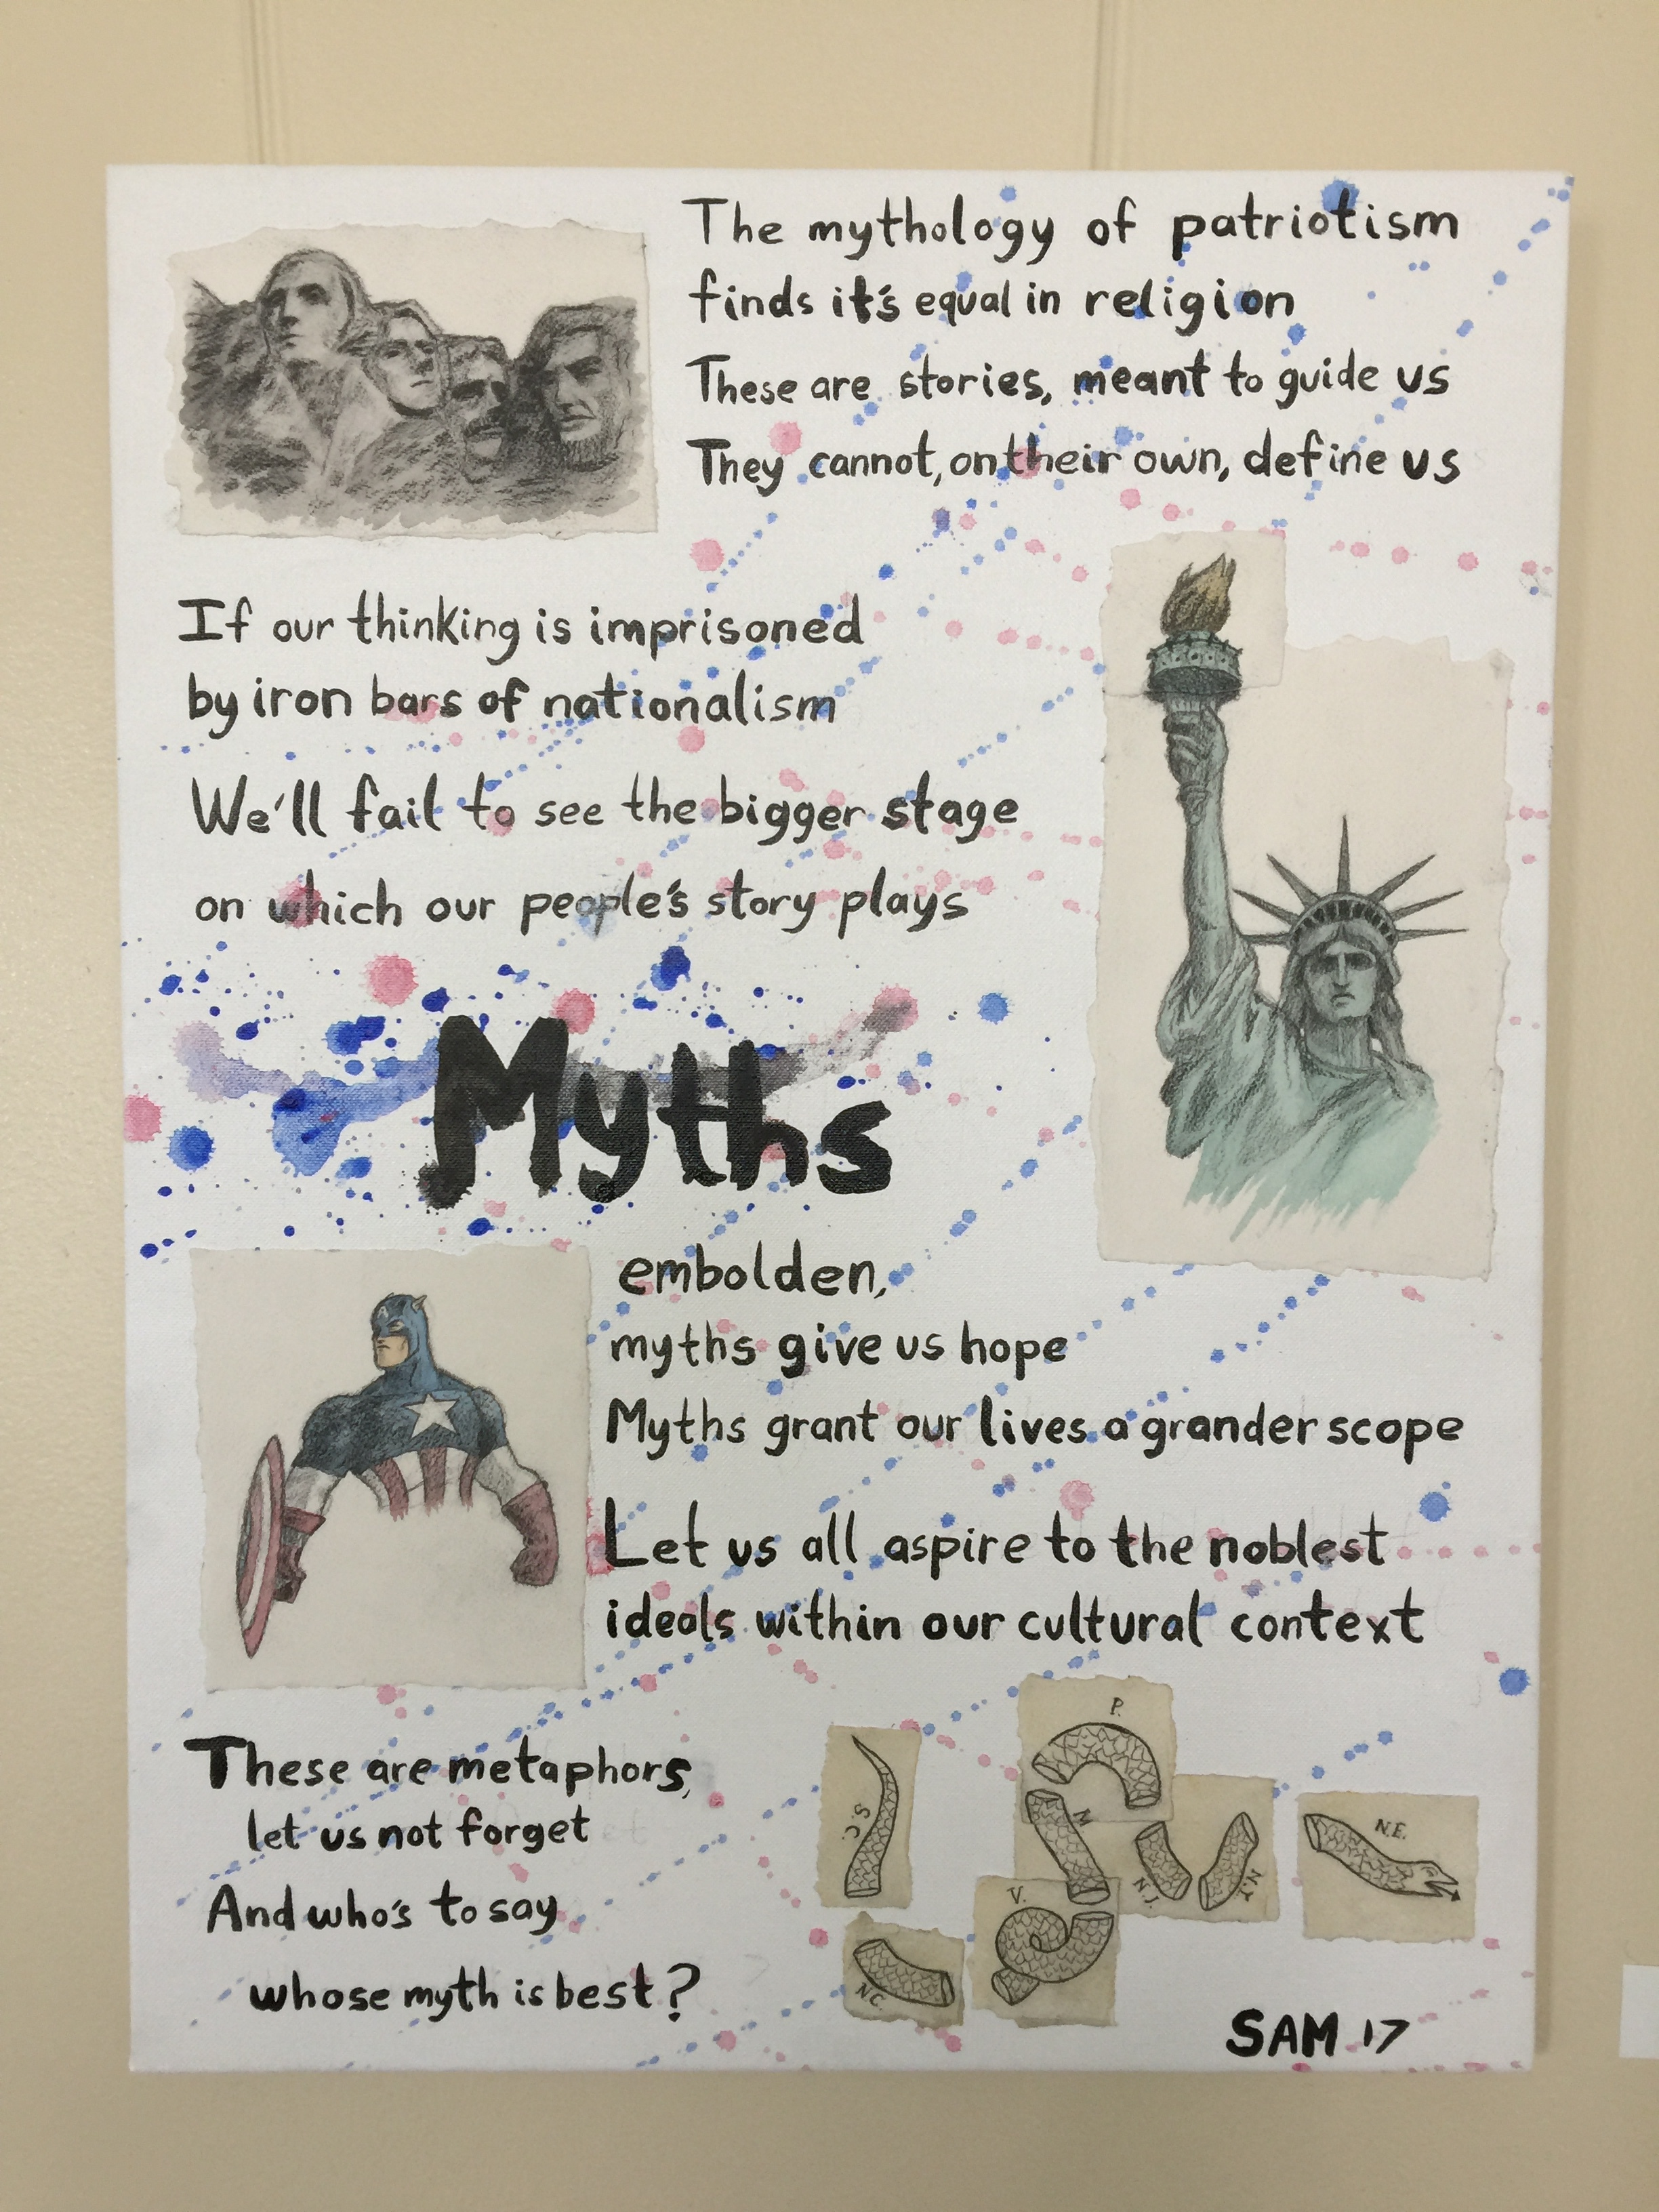 The mythology of patriotism
finds it's equal in religion
These are stories, meant to guide us
They cannot, on their own, define us
If our thinking is imprisoned
by iron bars of nationalism
We'll fail to see the bigger stage
on which our people's story plays
Myths
embolden,
myths give us hope
Myths grant our lives a grander scope
Let us all aspire to the noblest
ideals within our cultural context
These are metaphors,
let us not forget
And who's to say
whose myth is best?
S.C.
N.C.
V.
P.
M
N.J.
N.Y.
N.E.
A
SAM 17